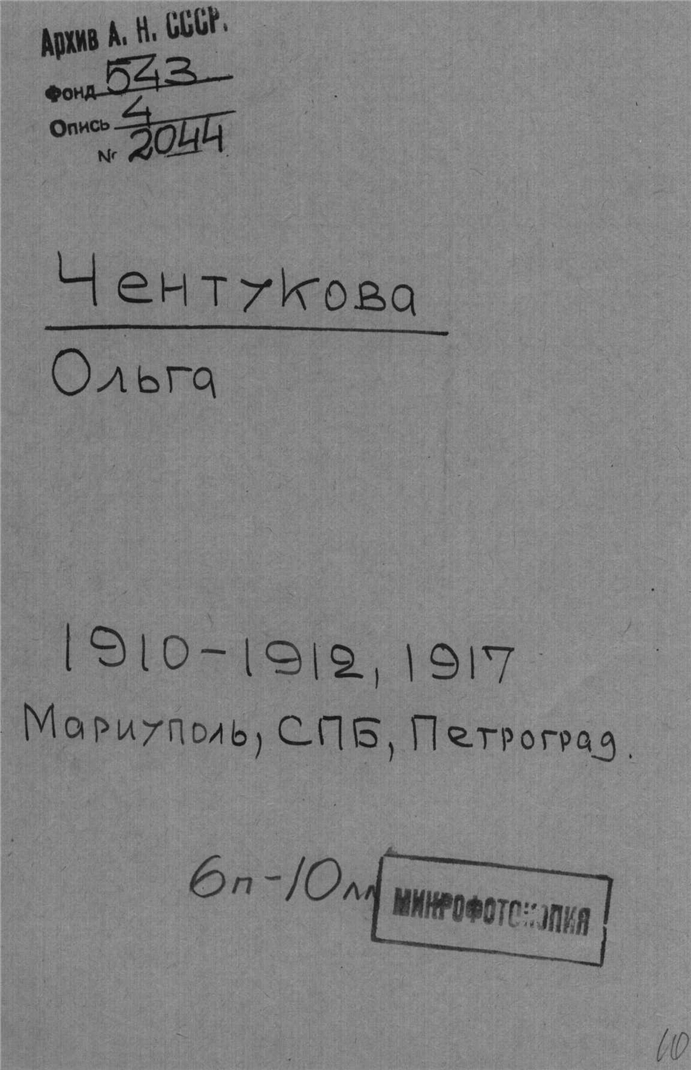 Архив А. Н. СССР.
Фонд 543
Опись 4
Nr 2044
Чентукова
Ольга
1910-1912, 1917
Мариуполь, СПБ, Петроград.
6п-10лл
МИКРОФОТОКОПИЯ
10